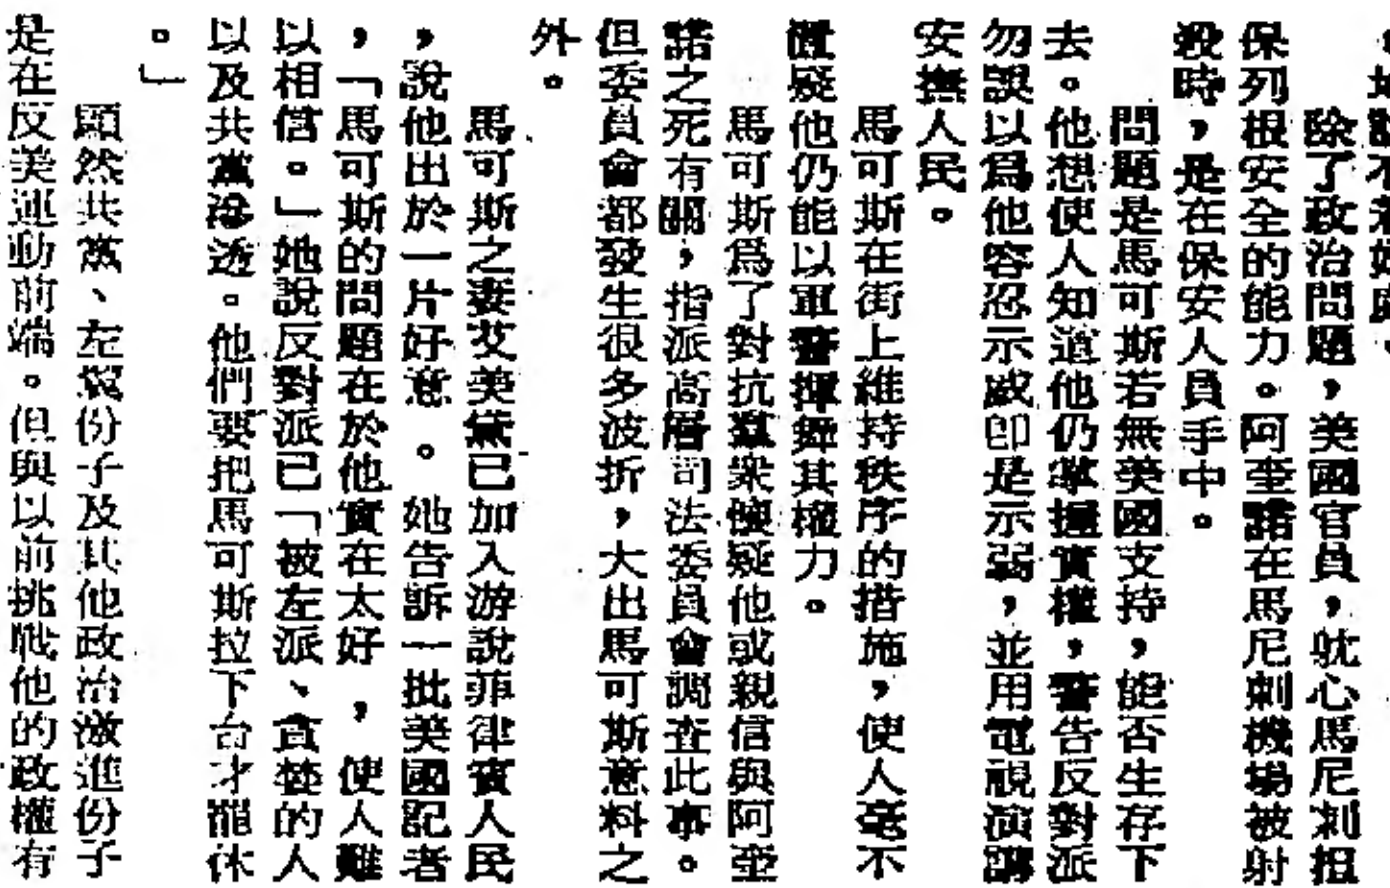 不若她處
除了政治問題，美國官員，躭心馬尼剌担
保列根安全的能力。阿奎諾在馬尼剌機場被射
殺時，是在保安人員手中。
問題是馬可斯若無美國支持，能否生存下
去。他想使人知道他仍掌握實權，警告反對派
勿誤以爲他容忍示威卽是示弱，並用電視演講
安撫人民。
馬可斯在街上維持秩序的措施，使人毫不
懷疑他仍能以軍警揮舞其權力。
馬可斯爲了對抗羣衆懷疑他或親信與阿奎
諾之死有關，指派高層司法委員會調查此事。
但委員會都發生很多波折，大出馬可斯意料之
外。
馬可斯之妻艾美黛已加入游說菲律賓人民
，說他出於一片好意。她告訴一批美國記者
，「馬可斯的問題在於他實在太好，使人難
以相信。」她說反對派已「被左派、貪婪的人
以及共黨滲透。他們要把馬可斯拉下台才罷休
。」
顯然共黨、左翼份子及其他政治激進份子
是在反美運動前端。但與以前挑戰他的政權有